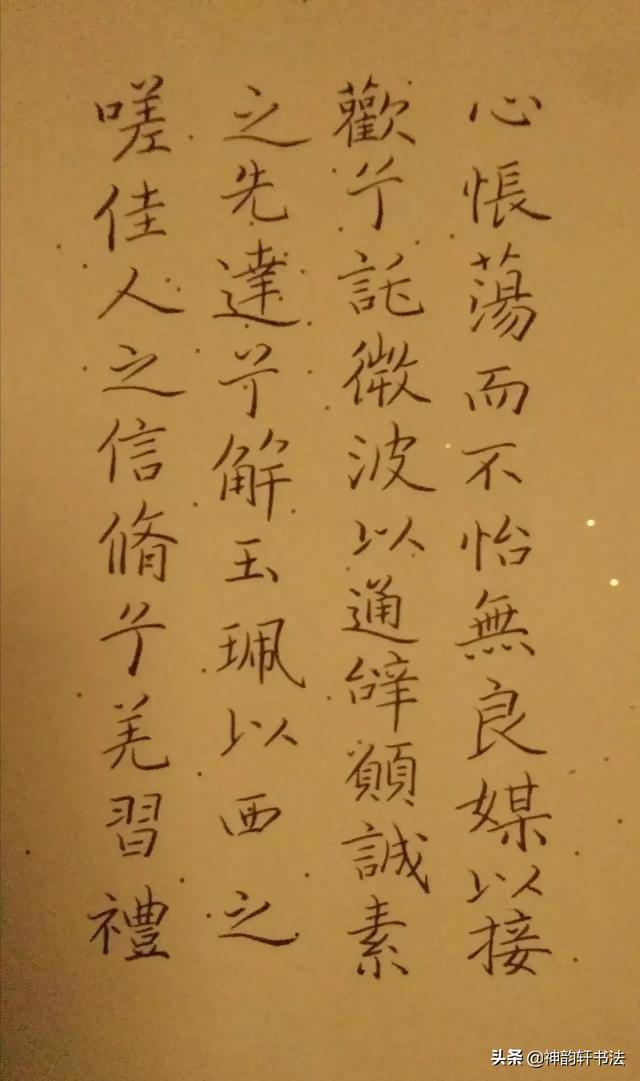 心悵蕩而不怡無良媒以接
歡兮託微波以通辝願誠素
之先達兮解玉珮以西之
嗟佳人之信脩兮羌習禮
头条 @神韵轩书法